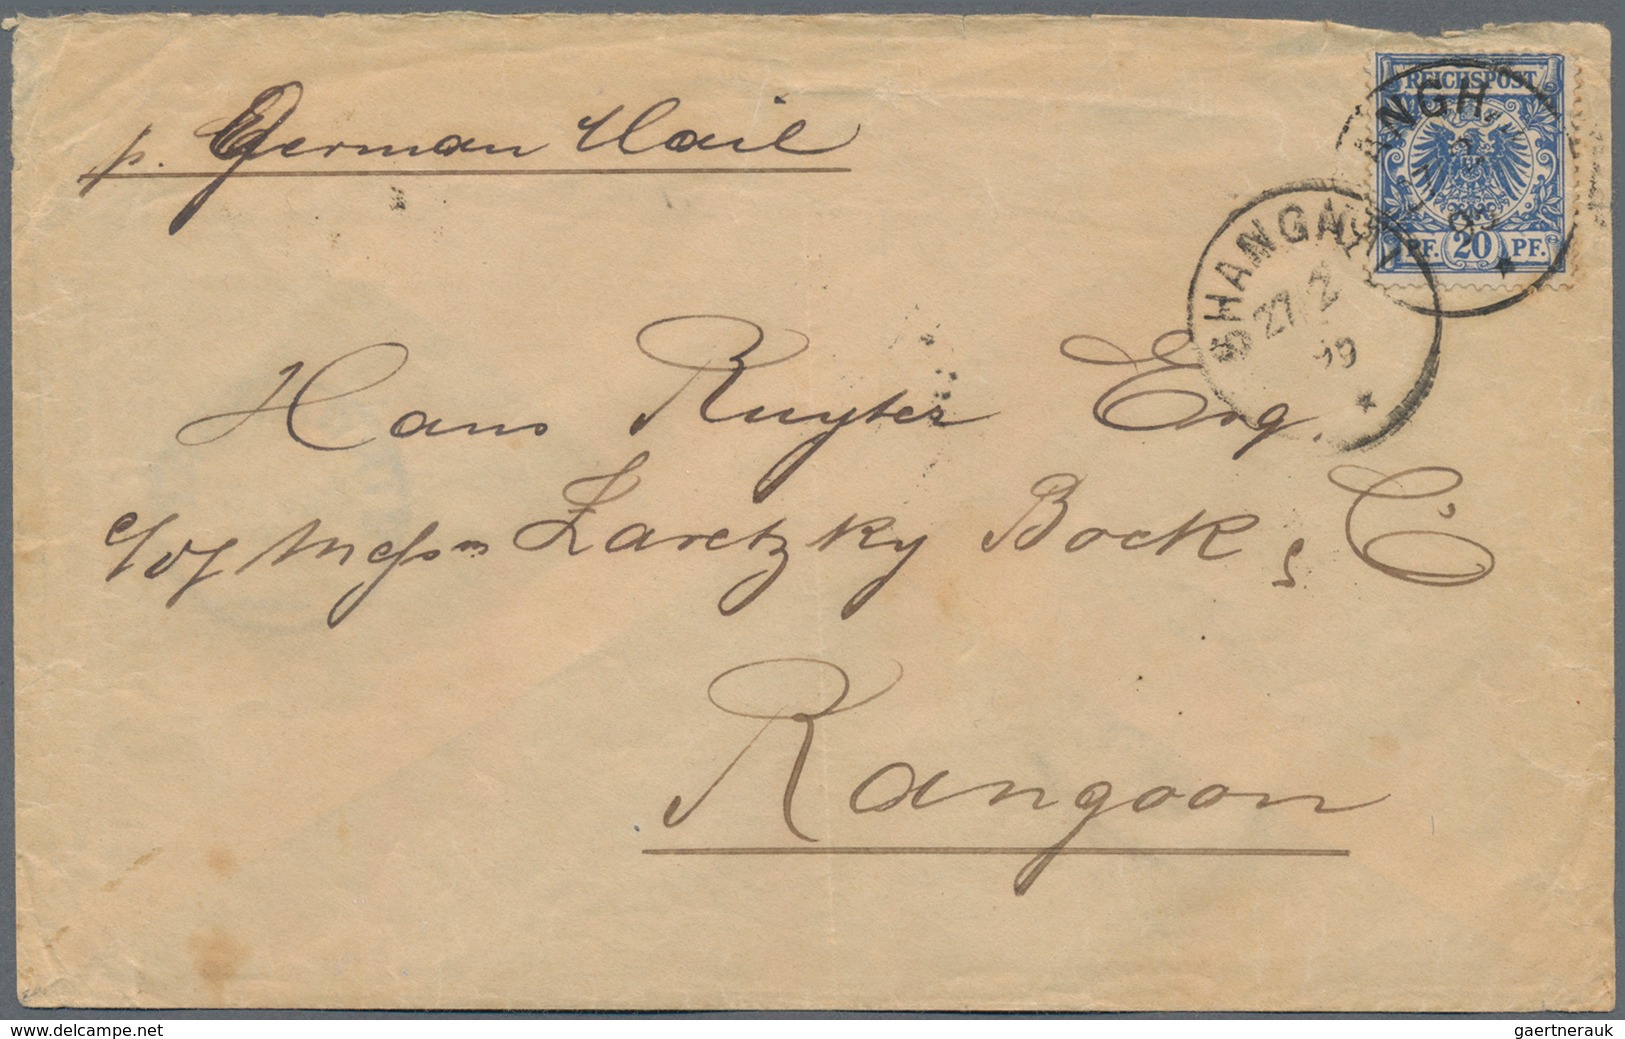 p. German Mail
REICHSPOST
PF. 20 PF.
SHANGHAI
27/2
99
*
ANGH
*
Hans Ruyter Esq.
c/of Messrs Zaretzky Bock & Co
Rangoon
delcampe.net
gaertnerauk